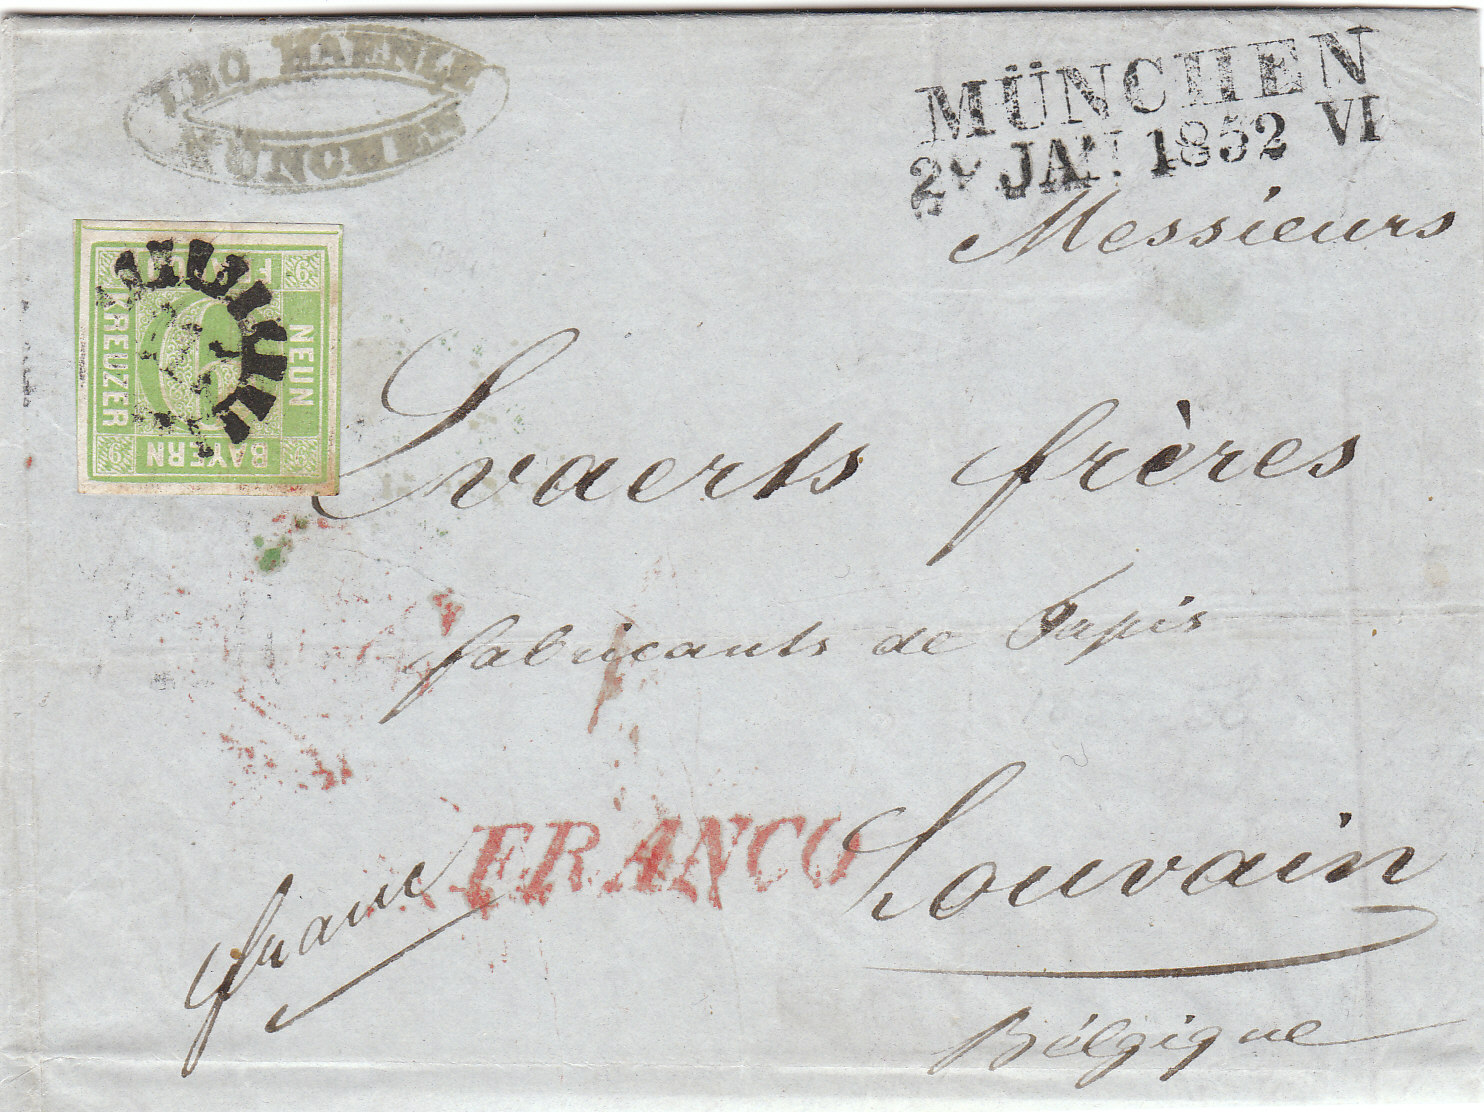 LEO HAENLE
MÜNCHEN
MÜNCHEN
JAN 1852 VI
Messieurs
9 9
NEUN
KREUZER
BAYERN
9 9
frères
fabricants de Tapis
FRANCO
franc
Louvain
Bélgique